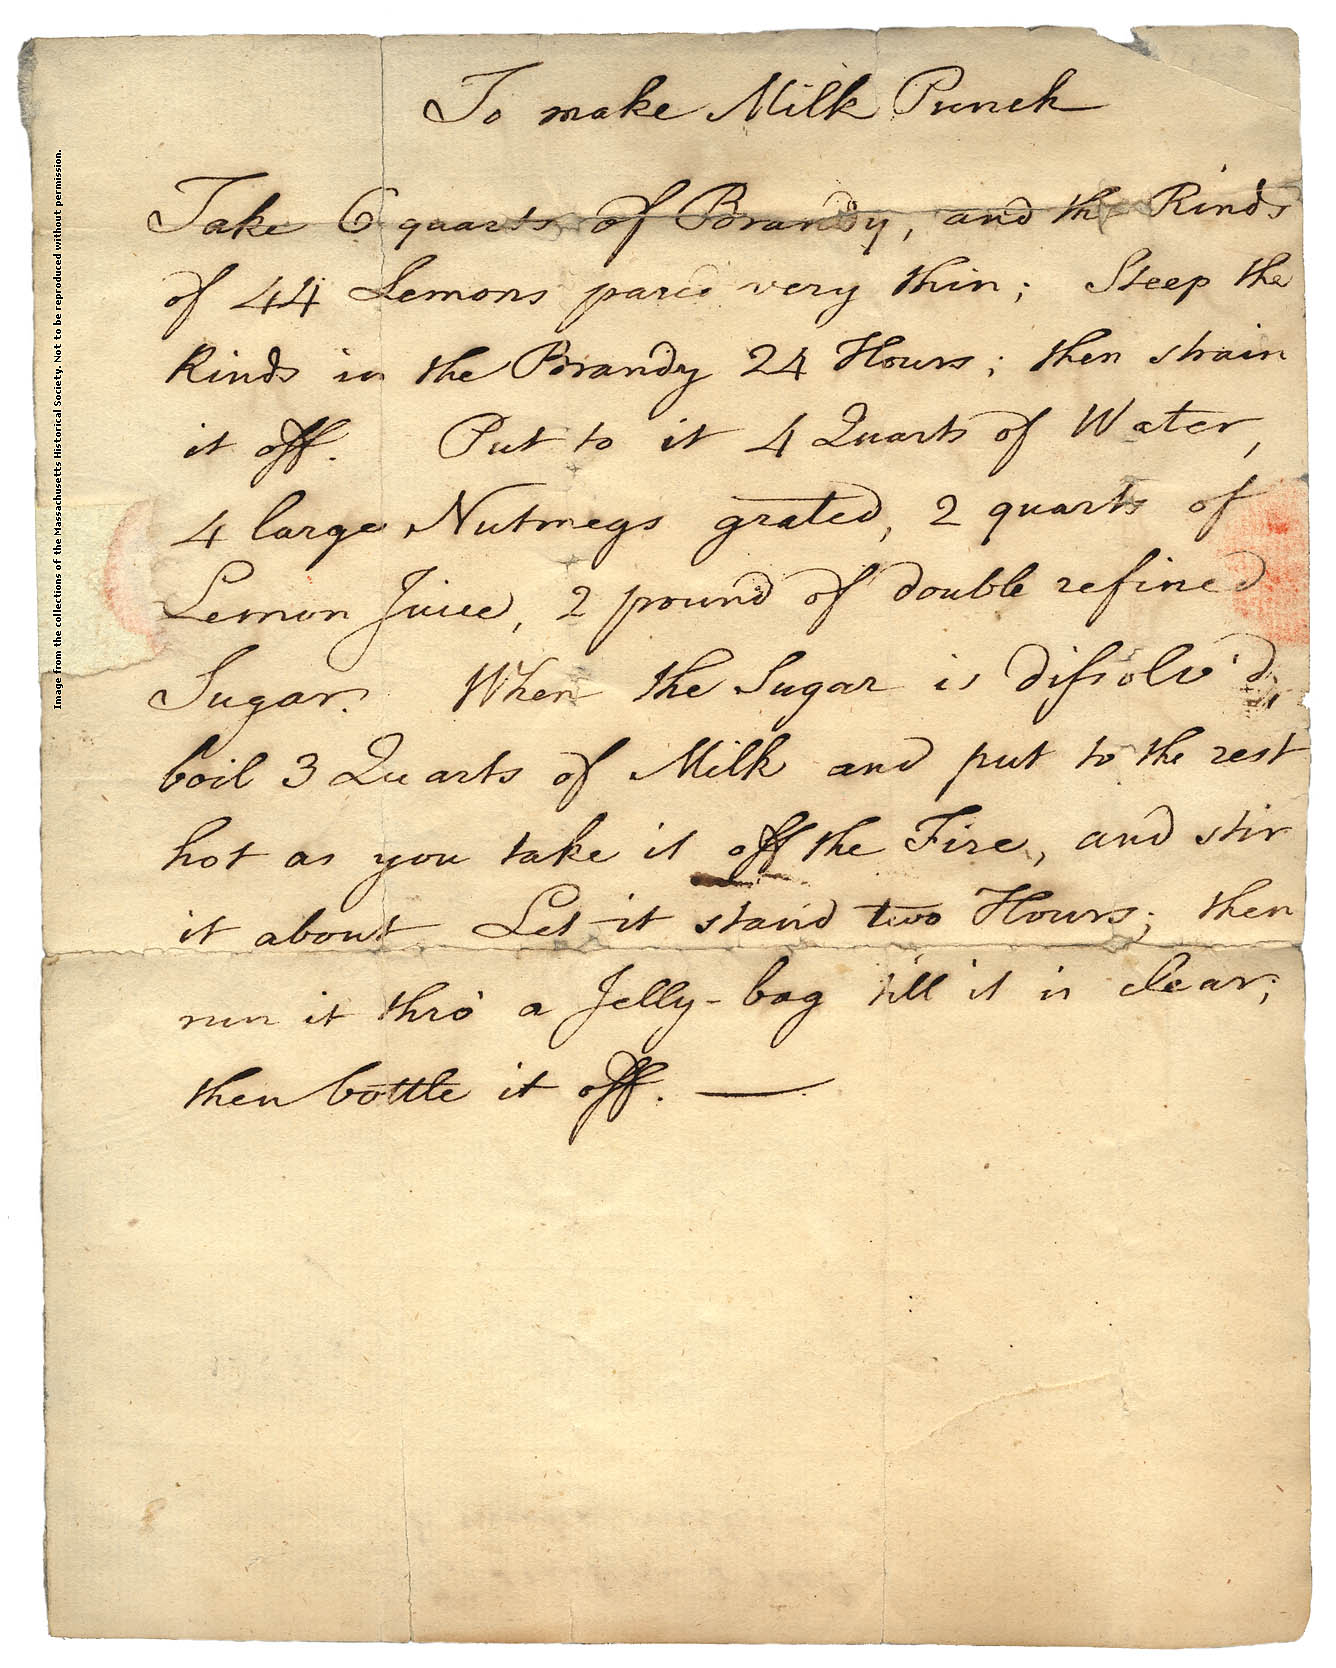 To make Milk Punch
Take 6 quarts of Brandy, and the Rinds
of 44 Lemons pared very thin; Steep the
Rinds in the Brandy 24 Hours; then strain
it off. Put to it 4 Quarts of Water,
4 large Nutmegs grated, 2 quarts of
Lemon Juice, 2 pound of double refined
Sugar. When the Sugar is difsolv'd,
boil 3 Quarts of Milk and put to the rest
hot as you take it off the Fire, and stir
it about. Let it stand two Hours; then
run it thro' a Jelly-bag till it is clear;
then bottle it off.
Image from the collections of the Massachusetts Historical Society. Not to be reproduced without permission.